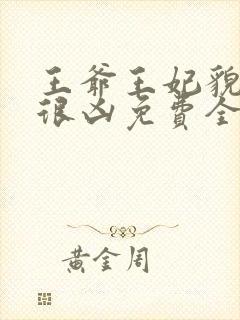 王爷王妃貌
很凶免费全
黄金周